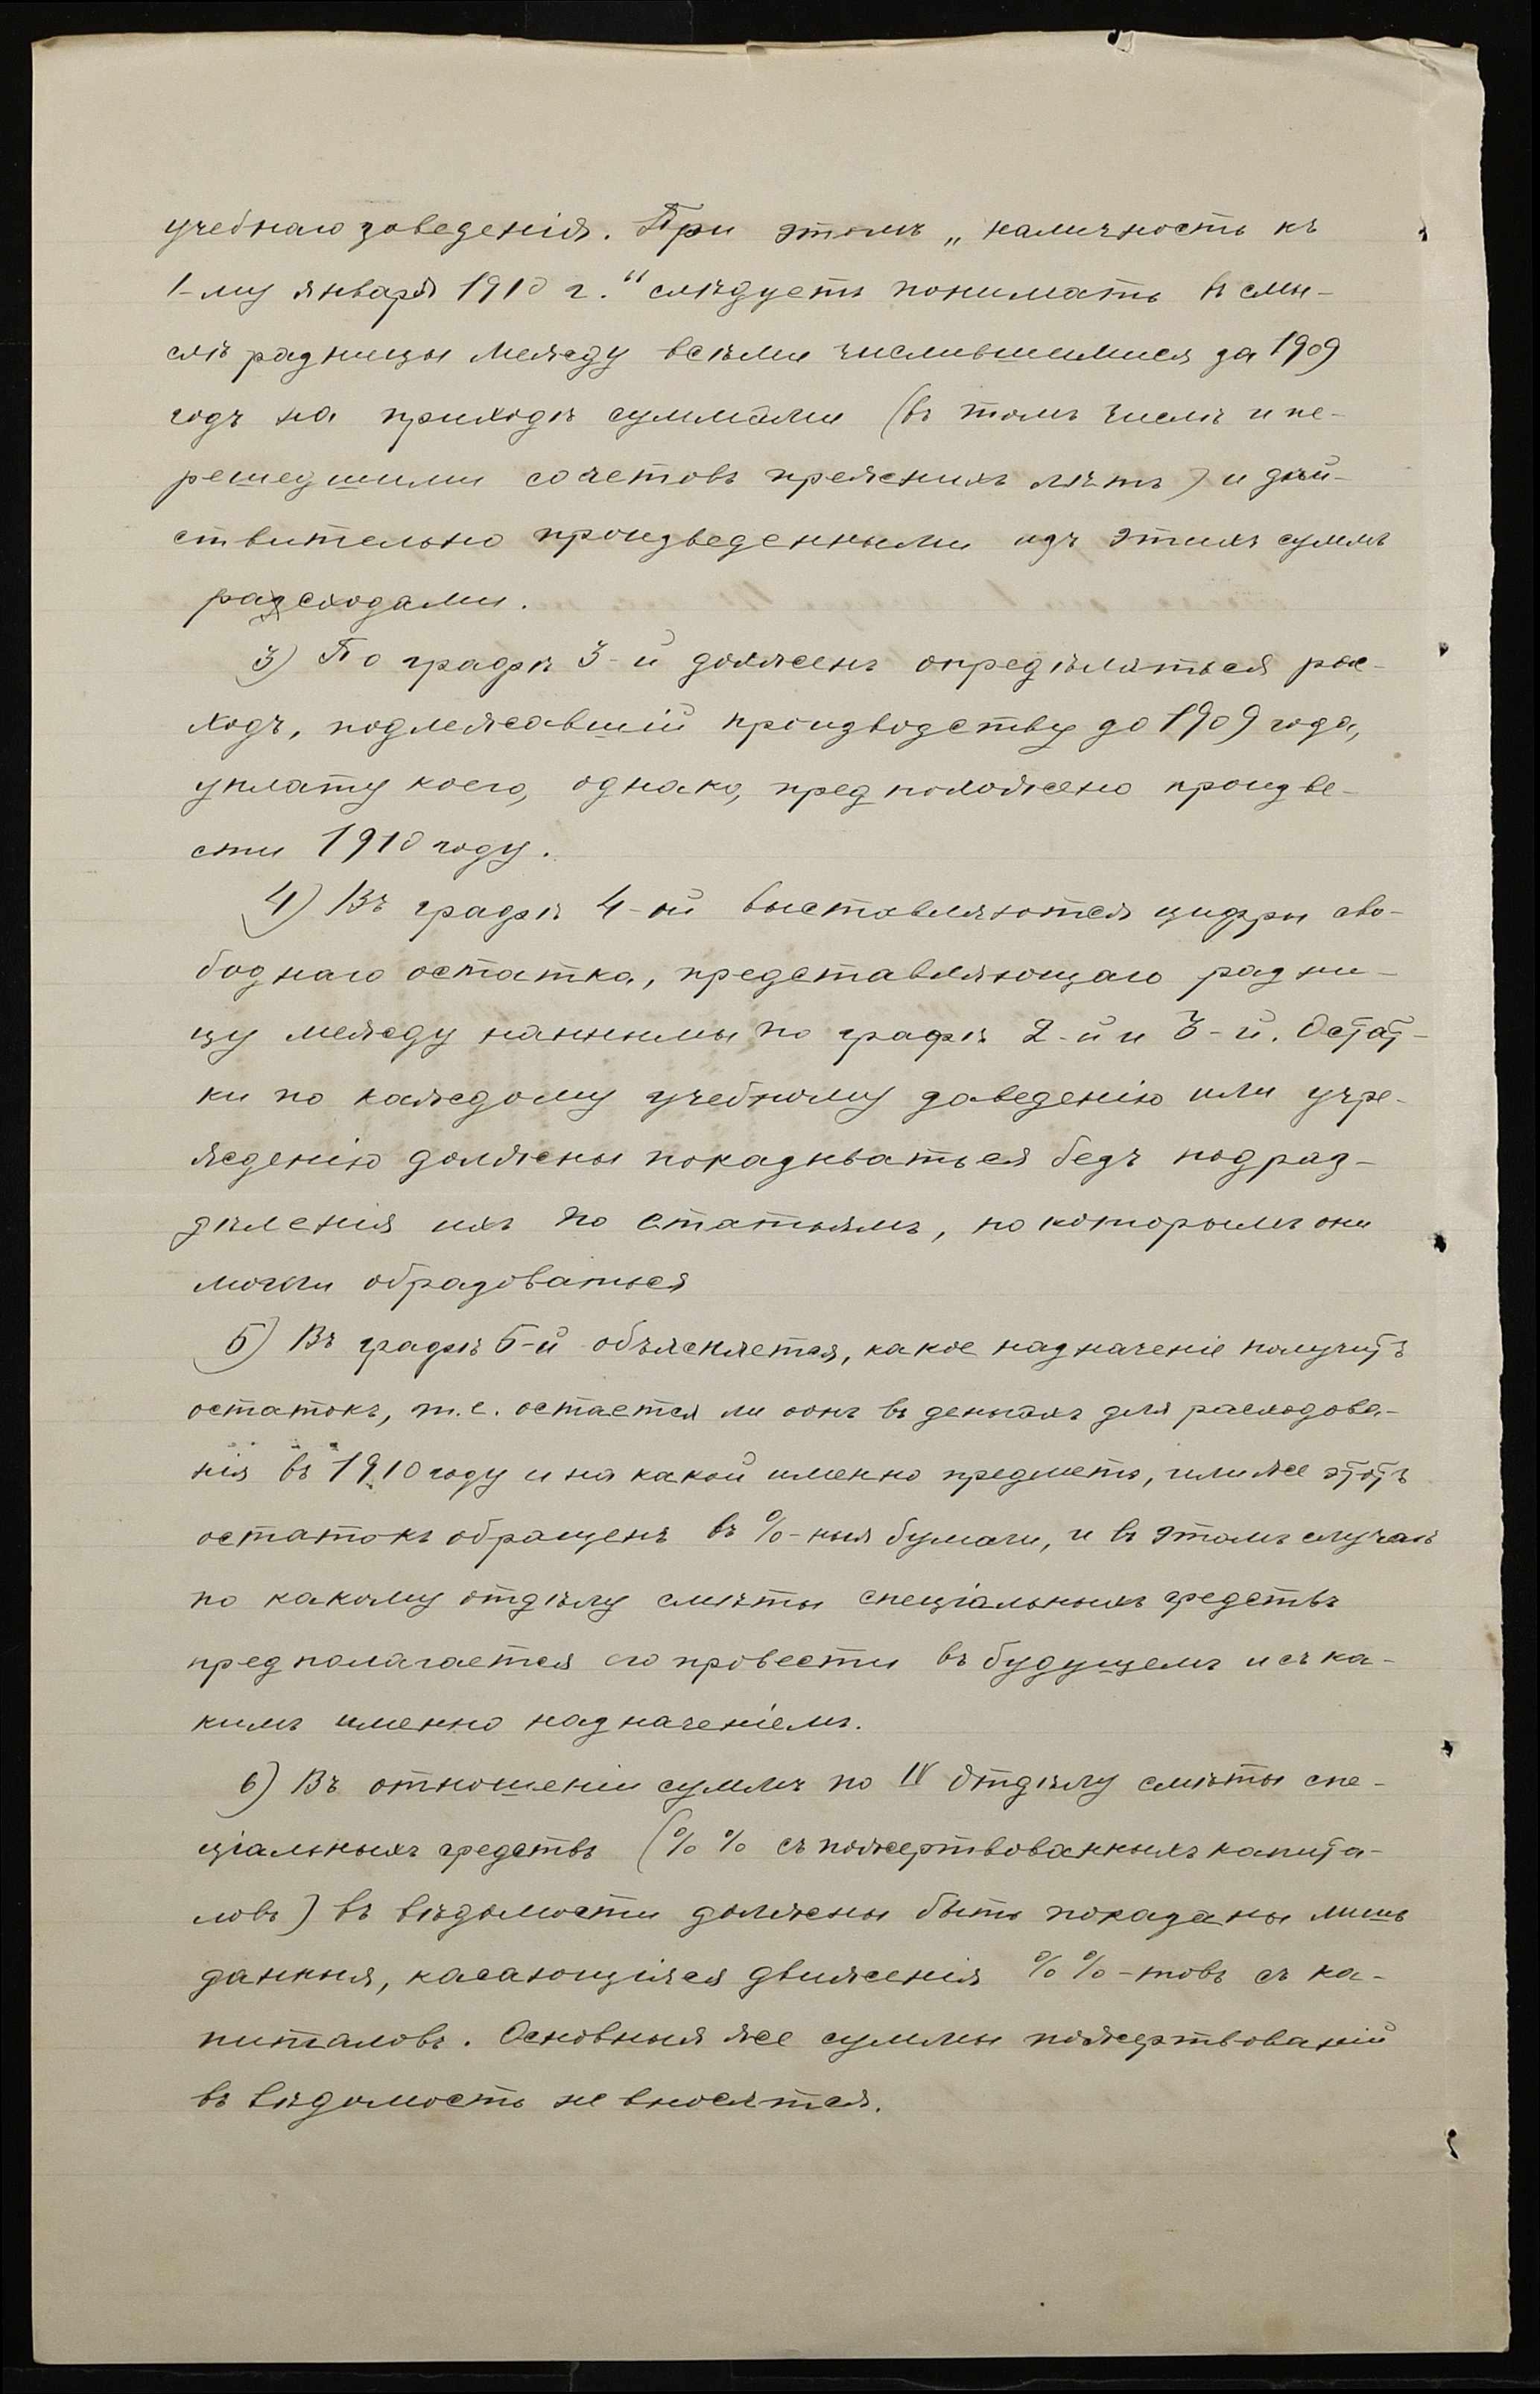 учебнаго заведенія. При этомъ „наличность къ
1-му января 1910 г.“ слѣдуетъ понимать въ смы-
слѣ разницы между всѣми числившимися за 1909
годъ на приходѣ суммами (въ томъ числѣ и пе-
решедшими со счетовъ прежнихъ лѣтъ) и дѣй-
ствительно произведенными изъ этихъ суммъ
разсходами.
3) По графѣ 3-й долженъ опредѣляться рас-
ходъ, подлежавшій производству до 1909 года,
уплату коего, однако, предположено произве-
сти 1910 году.
4) Въ графѣ 4-ой выставляются цифры сво-
боднаго остатка, представляющаго разни-
цу между данными по графѣ 2-й и 3-й. Остат-
ки по каждому учебному заведенію или учре-
жденію должны показываться безъ подраз-
дѣленія ихъ по статьямъ, по которымъ они
могли образоваться
5) Въ графѣ 5-й объясняется, какое назначеніе получитъ
остатокъ, т.е. остается ли онъ въ деньгахъ для расходова-
нія въ 1910 году и на какой именно предметъ, или же этотъ
остатокъ обращенъ въ %-ныя бумаги, и въ этомъ случаѣ
по какому отдѣлу смѣты спеціальныхъ средствъ
предполагается его провести въ будущемъ и съ ка-
кимъ именно назначеніемъ.
6) Въ отношеніи суммъ по IV отдѣлу смѣты спе-
ціальныхъ средствъ (%% съ пожертвованныхъ капита-
ловъ) въ вѣдомости должны быть показаны лишь
данныя, касающіяся движенія %%-товъ съ ка-
питаловъ. Основныя же суммы пожертвованій
въ вѣдомость не вносятся.